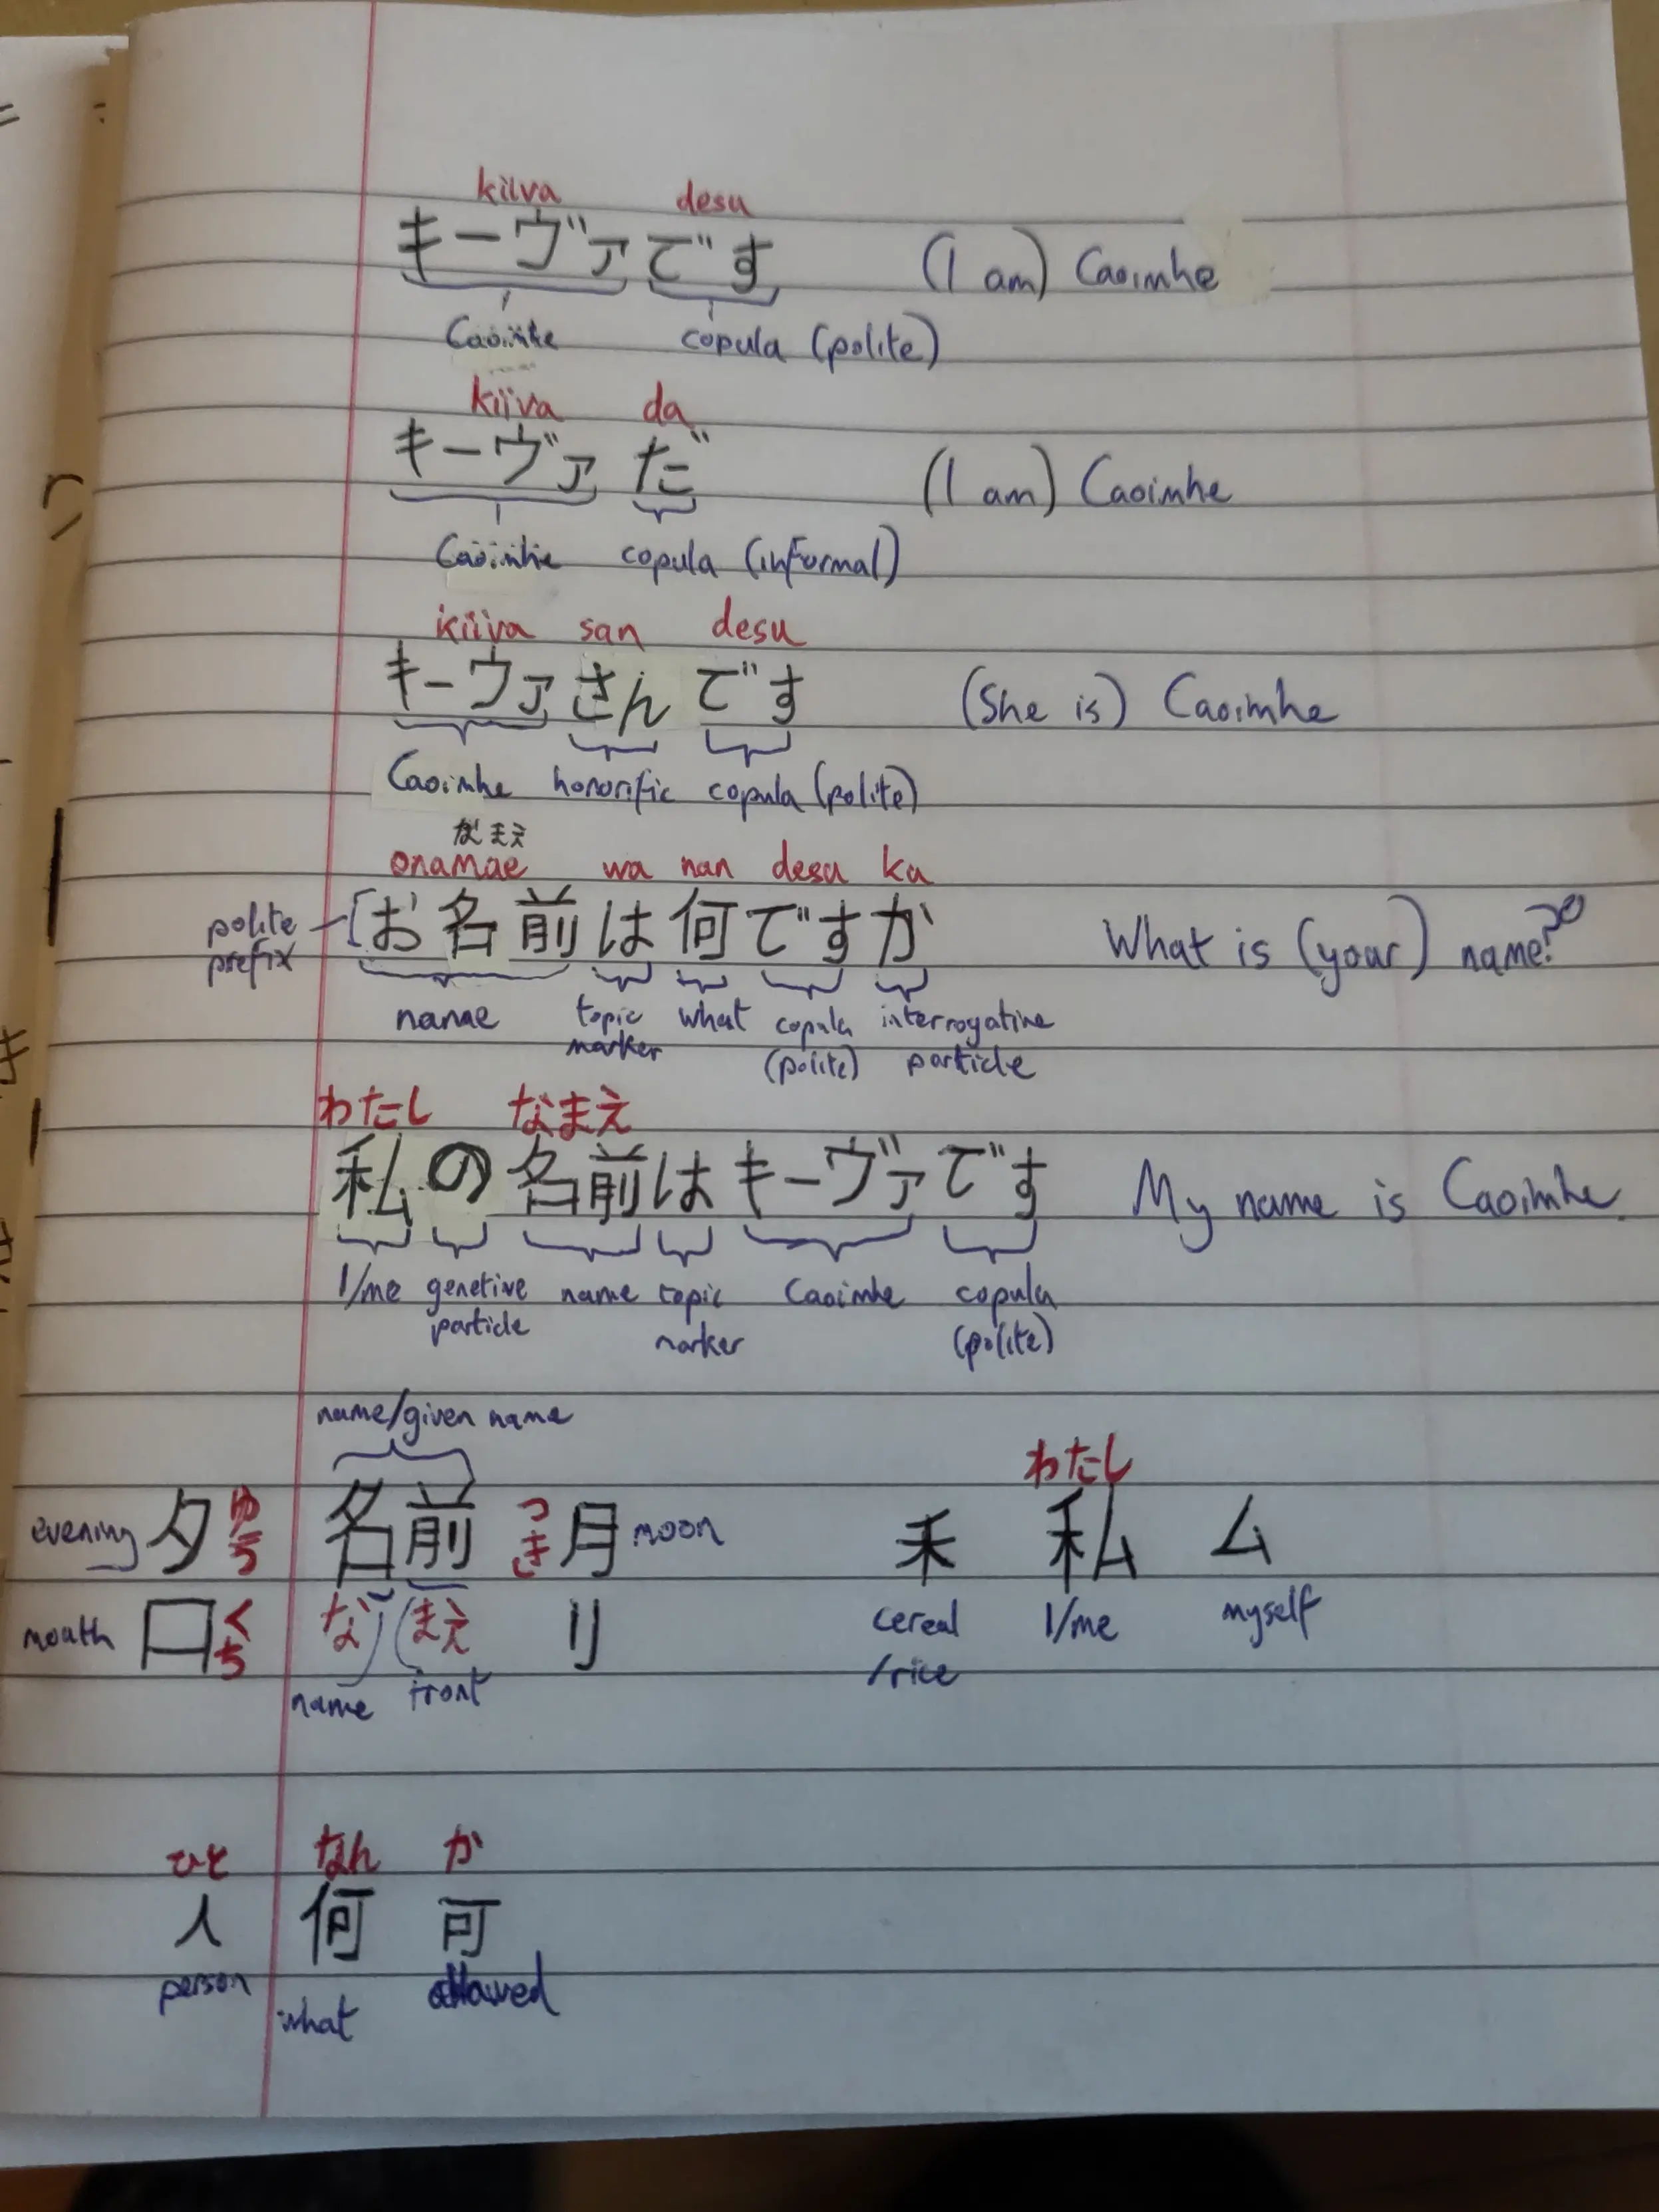 kiiva desu
キーヴァです (I am) Caoimhe
Caoimhe copula (polite)
kiiva da
キーヴァ だ (I am) Caoimhe
Caoimhe copula (informal)
kiiva san desu
キーウァ さん です (She is) Caoimhe
Caoimhe honorific copula (polite)
なまえ
onamae wa nan desu ka
polite prefix [お名前は何ですか What is (your) name?
name topic marker what copula (polite) interrogative particle
わたし なまえ
私の名前はキーヴァです My name is Caoimhe.
I/me genetive particle name topic marker Caoimhe copula (polite)
name/given name
わたし
evening 夕 ゆう 名前 つき 月 moon 禾 私 ム
mouth 口 くち な まえ 刂 cereal /rice I/me myself
name front
ひと なん か
人 何 可
person what allowed